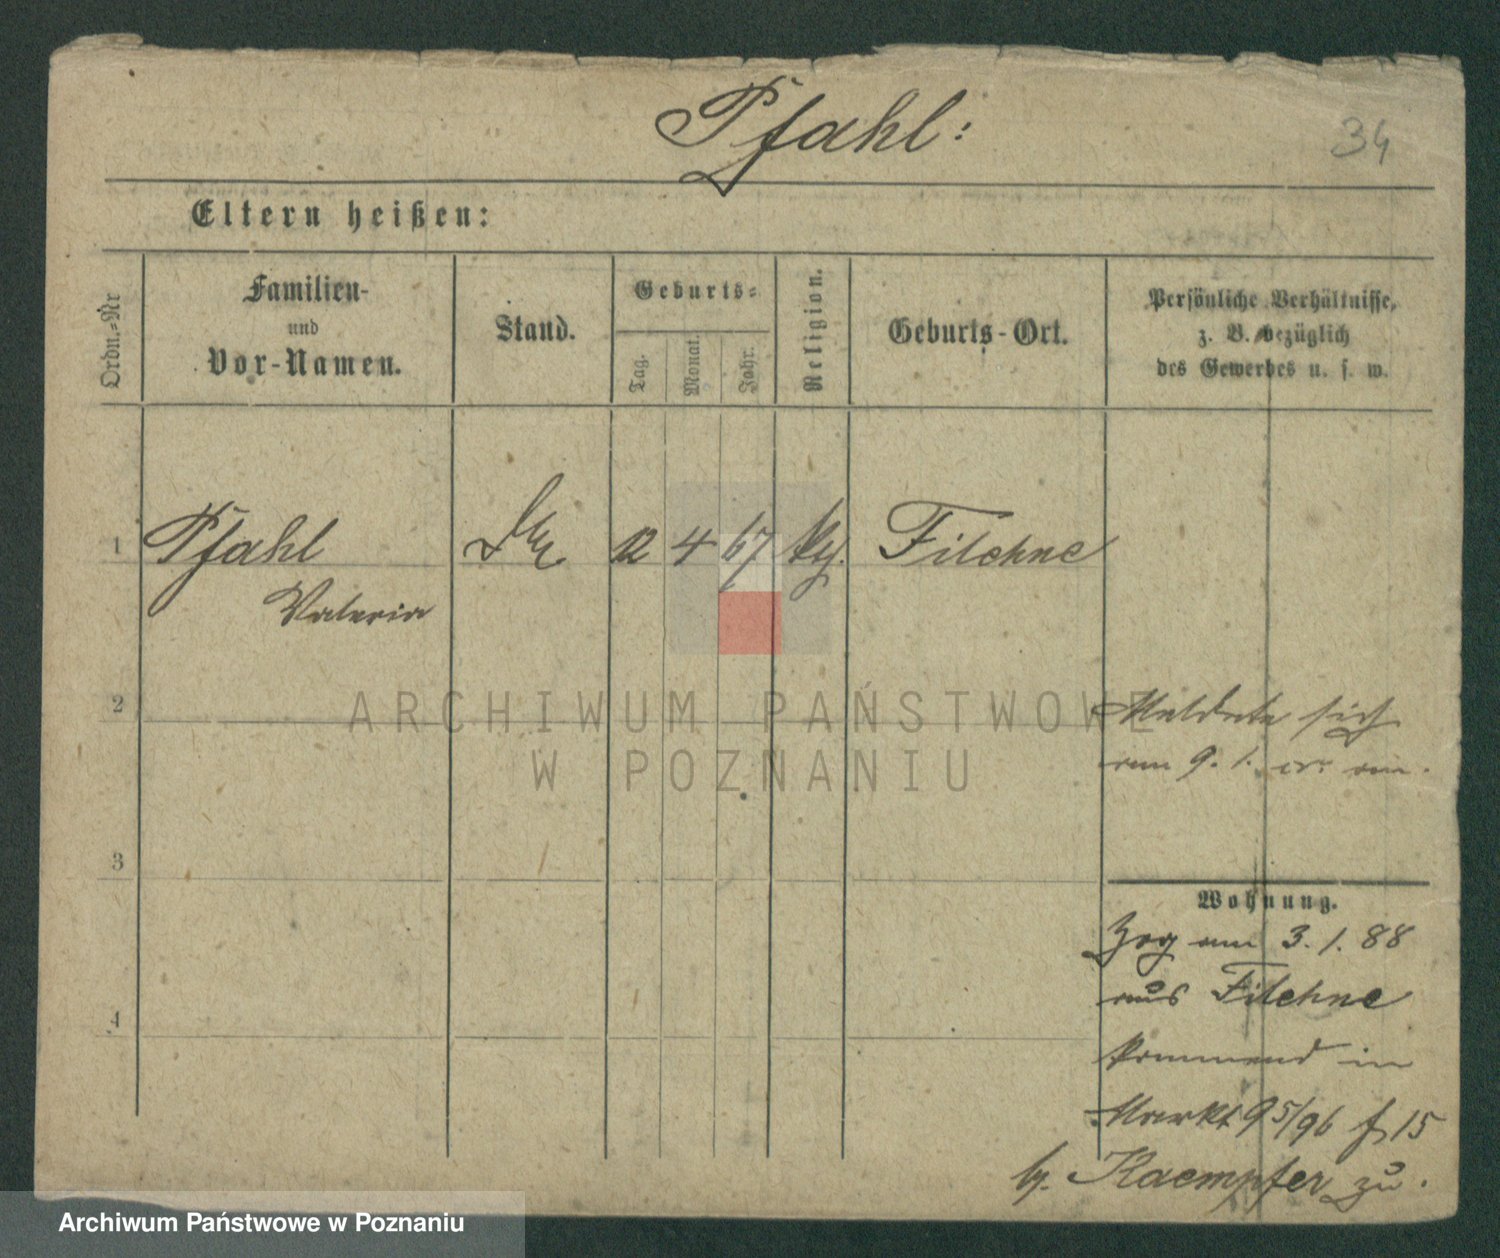 Pfahl:
34
Eltern heißen:
Ordn.=Nr
Familien-
und
Vor-Namen.
Stand.
Geburts=
Tag.
Monat.
Jahr.
Religion.
Geburts-Ort.
Persönliche Verhältnisse,
z. B. bezüglich
des Gewerbes u. s. w.
1 Pfahl 12 4 67 Filehne
Valeria
2
3
4
Meldete sich
am 9. 1. cr. an.
Wohnung.
Zog am 3. 1. 88
aus Filehne
kommend in
Markt 95/96 f 15
by. Kaempfer zu.
ARCHIWUM PAŃSTWOWE
W POZNANIU
Archiwum Państwowe w Poznaniu